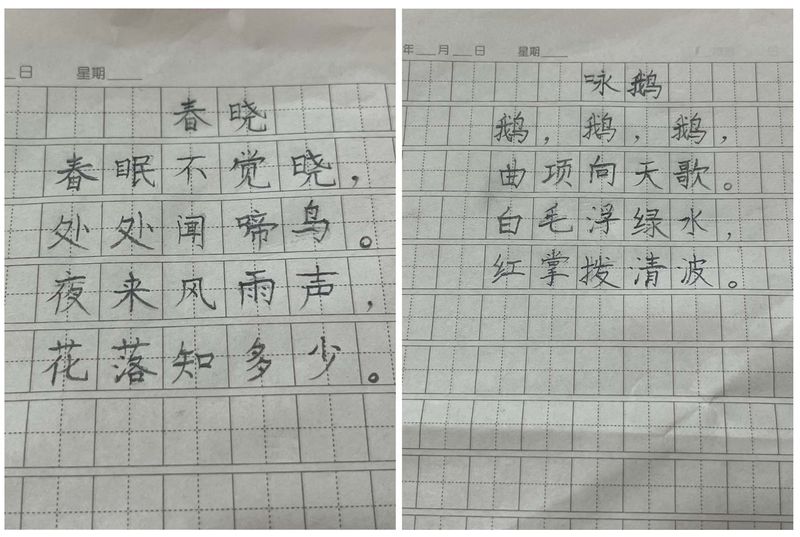 日 星期
春晓
春眠不觉晓，
处处闻啼鸟。
夜来风雨声，
花落知多少。
年 月 日 星期
咏鹅
鹅，鹅，鹅，
曲项向天歌。
白毛浮绿水，
红掌拨清波。